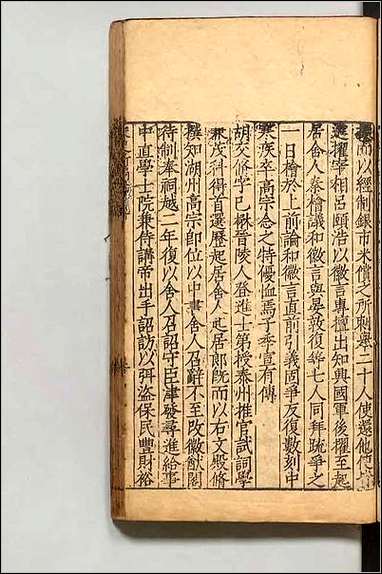 而以經制錄市米償之所剩舉二十人使還他使
選擢宰相呂頤浩以徽言專擅出知興國軍後擢至起
居舍人秦檜議和徽言與晏敦復等七人同拜疏爭之
一日檜於上前論和徽言直前引義固爭反復數刻中
寒疾卒高宗念之特優恤焉子季宣有傳
胡交脩字己楙晉陵人登進士第授泰州推官試詞學
兼茂科得首選歷起居舍人起居郎旣而以右文殿脩
撰知湖州高宗即位以中書舍人召辭不至改徽猷閣
待制奉祠越二年復以舍人召詔守臣津發尋進給事
中直學士院兼侍講帝出手詔訪以弭盜保民豐財裕